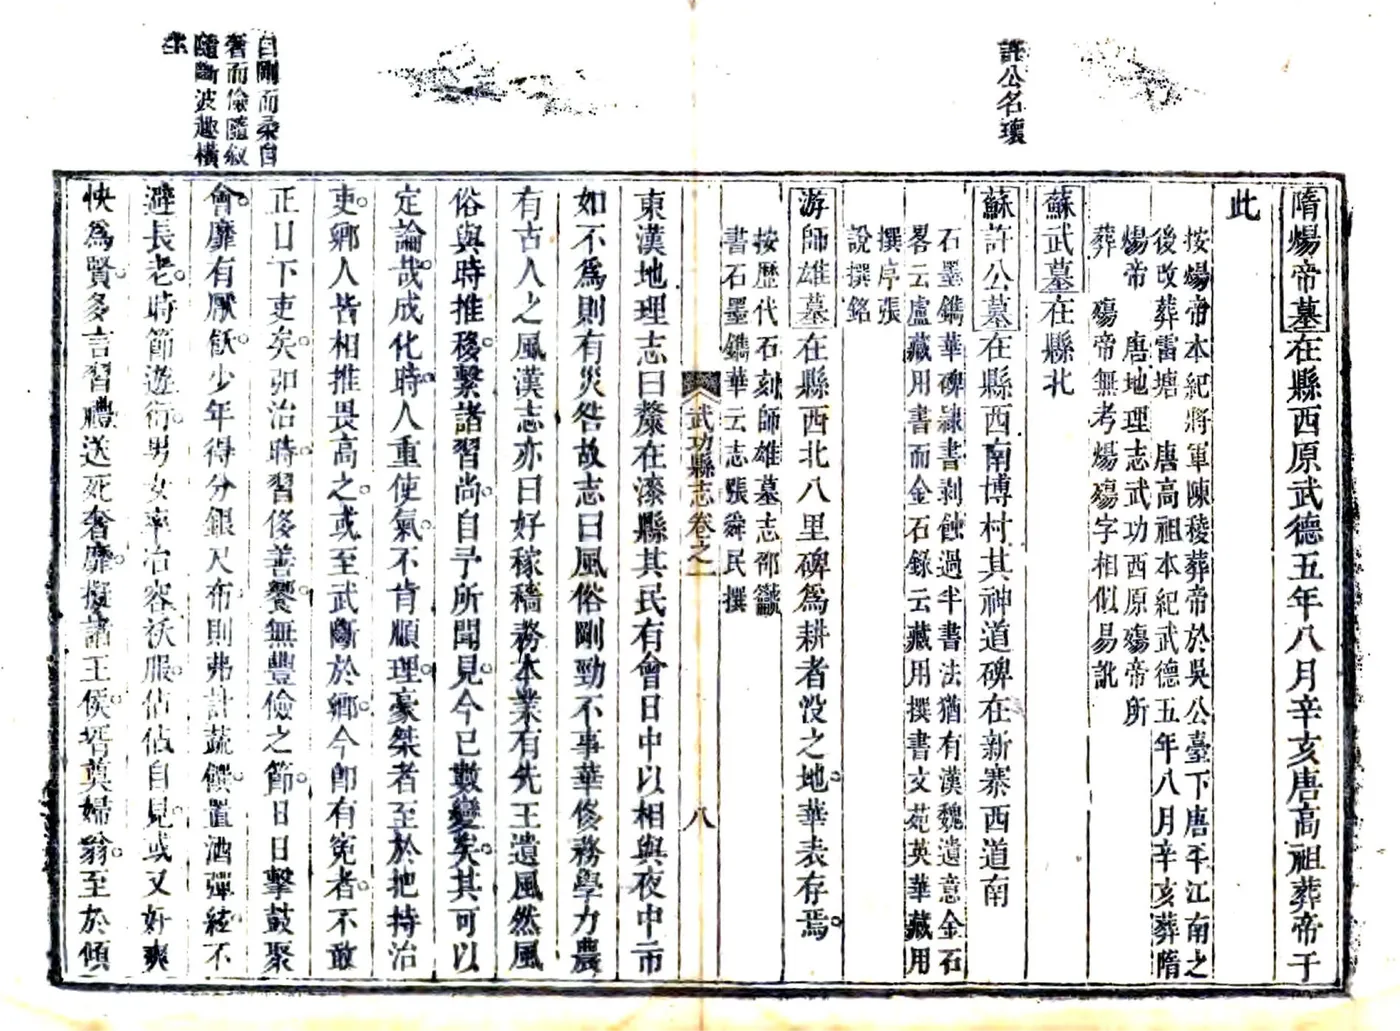 許公名瓌
隋煬帝墓在縣西原武德五年八月辛亥唐高祖葬帝于
此
按煬帝本紀將軍陳稜葬帝於吳公臺下唐平江南之
後改葬雷塘　唐高祖本紀武德五年八月辛亥葬隋
煬帝　唐地理志武功西原殤帝所
葬　殤帝無考煬殤字相似易訛
蘇武墓在縣北
蘇許公墓在縣西南博村其神道碑在新寨西道南
石墨鐫華碑隷書剥蝕過半書法猶有漢魏遺意金石
畧云盧藏用書而金石錄云藏用撰書文苑英華藏用
撰序張
說撰銘
游師雄墓在縣西北八里碑爲耕者没之地華表存焉
按歷代石刻師雄墓志邵𪗋
書石墨鐫華云志張舜民撰
武功縣志卷之一
八
東漢地理志曰漦在漆縣其民有會日中以相與夜中市
如不爲則有災咎故志曰風俗剛勁不事華侈務學力農
有古人之風漢志亦曰好稼穡務本業有先王遺風然風
俗與時推移繫諸習尚自予所聞見今已數變矣其可以
定論哉成化時人重使氣不肯順理豪桀者至於把持治
吏鄉人皆相推畏高之或至武斷於鄉今卽有寃者不敢
正目下吏矣弘治時習侈善饗無豐儉之節日日擊鼓聚
會靡有厭飫少年得分銀尺布則弗計蔬饌置酒彈絃不
避長老時節遊衍男女率冶容袄服佔佔自見或又奸爽
快爲賢多言習禮送死奢靡擬諸王侯壻奠婦翁至於傾
自剛而柔自
奢而儉隨叙
隨斷波趣橫
生